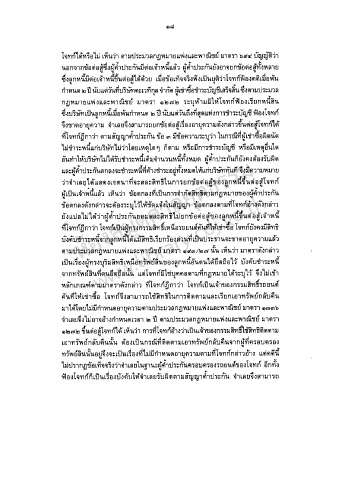 ๑๘
โจทก์ได้หรือไม่ เห็นว่า ตามประมวลกฎหมายแพ่งและพาณิชย์ มาตรา ๖๙๔ บัญญัติว่า
นอกจากข้อต่อสู้ซึ่งผู้ค้ำประกันมีต่อเจ้าหนี้แล้ว ผู้ค้ำประกันยังอาจยกข้อต่อสู้ทั้งหลาย
ซึ่งลูกหนี้มีต่อเจ้าหนี้ขึ้นต่อสู้ได้ด้วย เมื่อข้อเท็จจริงฟังเป็นยุติว่าโจทก์ฟ้องคดีเมื่อพ้น
กำหนด ๒ ปี นับแต่วันที่บริษัทตะเวทีกูล จำกัด ผู้เช่าซื้อชำระบัญชีเสร็จสิ้น ซึ่งตามประมวล
กฎหมายแพ่งและพาณิชย์ มาตรา ๑๒๗๒ ระบุห้ามมิให้โจทก์ฟ้องเรียกหนี้สิน
ซึ่งบริษัทเป็นลูกหนี้เมื่อพ้นกำหนด ๒ ปี นับแต่วันถึงที่สุดแห่งการชำระบัญชี ฟ้องโจทก์
จึงขาดอายุความ จำเลยจึงสามารถยกข้อต่อสู้เรื่องอายุความดังกล่าวขึ้นต่อสู้โจทก์ได้
ที่โจทก์ฎีกาว่า ตามสัญญาค้ำประกัน ข้อ ๓ มีข้อความระบุว่า ในกรณีที่ผู้เช่าซื้อผิดนัด
ไม่ชำระหนี้แก่บริษัทไม่ว่าโดยเหตุใดๆ ก็ตาม หรือมีการชำระบัญชี หรือมีเหตุอื่นใด
อันทำให้บริษัทไม่ได้รับชำระหนี้เต็มจำนวนหนี้ทั้งหมด ผู้ค้ำประกันก็ยังคงต้องรับผิด
และผู้ค้ำประกันตกลงจะชำระหนี้ที่ค้างชำระอยู่ทั้งหมดให้แก่บริษัททันที จึงมีความหมาย
ว่าจำเลยได้แสดงเจตนาที่จะสละสิทธิในการยกข้อต่อสู้ของลูกหนี้ขึ้นต่อสู้โจทก์
ผู้เป็นเจ้าหนี้แล้ว เห็นว่า ข้อตกลงที่เป็นการจำกัดสิทธิตามกฎหมายของผู้ค้ำประกัน
ข้อตกลงดังกล่าวจะต้องระบุไว้ให้ชัดแจ้งในสัญญา ข้อตกลงตามที่โจทก์อ้างดังกล่าว
ยังแปลไม่ได้ว่าผู้ค้ำประกันยอมสละสิทธิไม่ยกข้อต่อสู้ของลูกหนี้ขึ้นต่อสู้เจ้าหนี้
ที่โจทก์ฎีกาว่า โจทก์เป็นผู้ทรงกรรมสิทธิ์เหนือรถยนต์คันที่ให้เช่าซื้อ โจทก์ยังคงมีสิทธิ
บังคับชำระหนี้จากลูกหนี้ได้แม้สิทธิเรียกร้องส่วนที่เป็นประธานจะขาดอายุความแล้ว
ตามประมวลกฎหมายแพ่งและพาณิชย์ มาตรา ๑๙๓/๒๗ นั้น เห็นว่า มาตราดังกล่าว
เป็นเรื่องผู้ทรงบุริมสิทธิเหนือทรัพย์สินของลูกหนี้อันตนได้ยึดถือไว้ บังคับชำระหนี้
จากทรัพย์สินที่ตนยึดถือนั้น แต่โจทก์มิใช่บุคคลตามที่กฎหมายได้ระบุไว้ จึงไม่เข้า
หลักเกณฑ์ตามมาตราดังกล่าว ที่โจทก์ฎีกาว่า โจทก์เป็นเจ้าของกรรมสิทธิ์รถยนต์
คันที่ให้เช่าซื้อ โจทก์จึงสามารถใช้สิทธิในการติดตามและเรียกเอาทรัพย์กลับคืน
มาได้โดยไม่มีกำหนดอายุความตามประมวลกฎหมายแพ่งและพาณิชย์ มาตรา ๑๓๓๖
จำเลยจึงไม่อาจอ้างกำหนดเวลา ๒ ปี ตามประมวลกฎหมายแพ่งและพาณิชย์ มาตรา
๑๒๗๒ ขึ้นต่อสู้โจทก์ได้ เห็นว่า การที่โจทก์อ้างว่าเป็นเจ้าของกรรมสิทธิ์ใช้สิทธิติดตาม
เอาทรัพย์กลับคืนนั้น ต้องเป็นกรณีที่ติดตามเอาทรัพย์กลับคืนจากผู้ที่ครอบครอง
ทรัพย์สินนั้นอยู่จึงจะเป็นเรื่องที่ไม่มีกำหนดอายุความตามที่โจทก์กล่าวอ้าง แต่คดีนี้
ไม่ปรากฏข้อเท็จจริงว่าจำเลยในฐานะผู้ค้ำประกันครอบครองรถยนต์ของโจทก์ อีกทั้ง
ฟ้องโจทก์ก็เป็นเรื่องบังคับให้จำเลยรับผิดตามสัญญาค้ำประกัน จำเลยจึงสามารถ